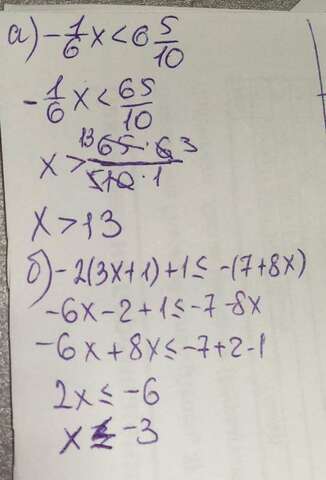 а) -1/6 x < 6 5/10
-1/6 x < 65/10
x > 13 65 · 6 3 / 5 10 · 1
x > 13
б) -2(3x+1)+1 ≤ -(7+8x)
-6x-2+1 ≤ -7-8x
-6x+8x ≤ -7+2-1
2x ≤ -6
x ≤ -3